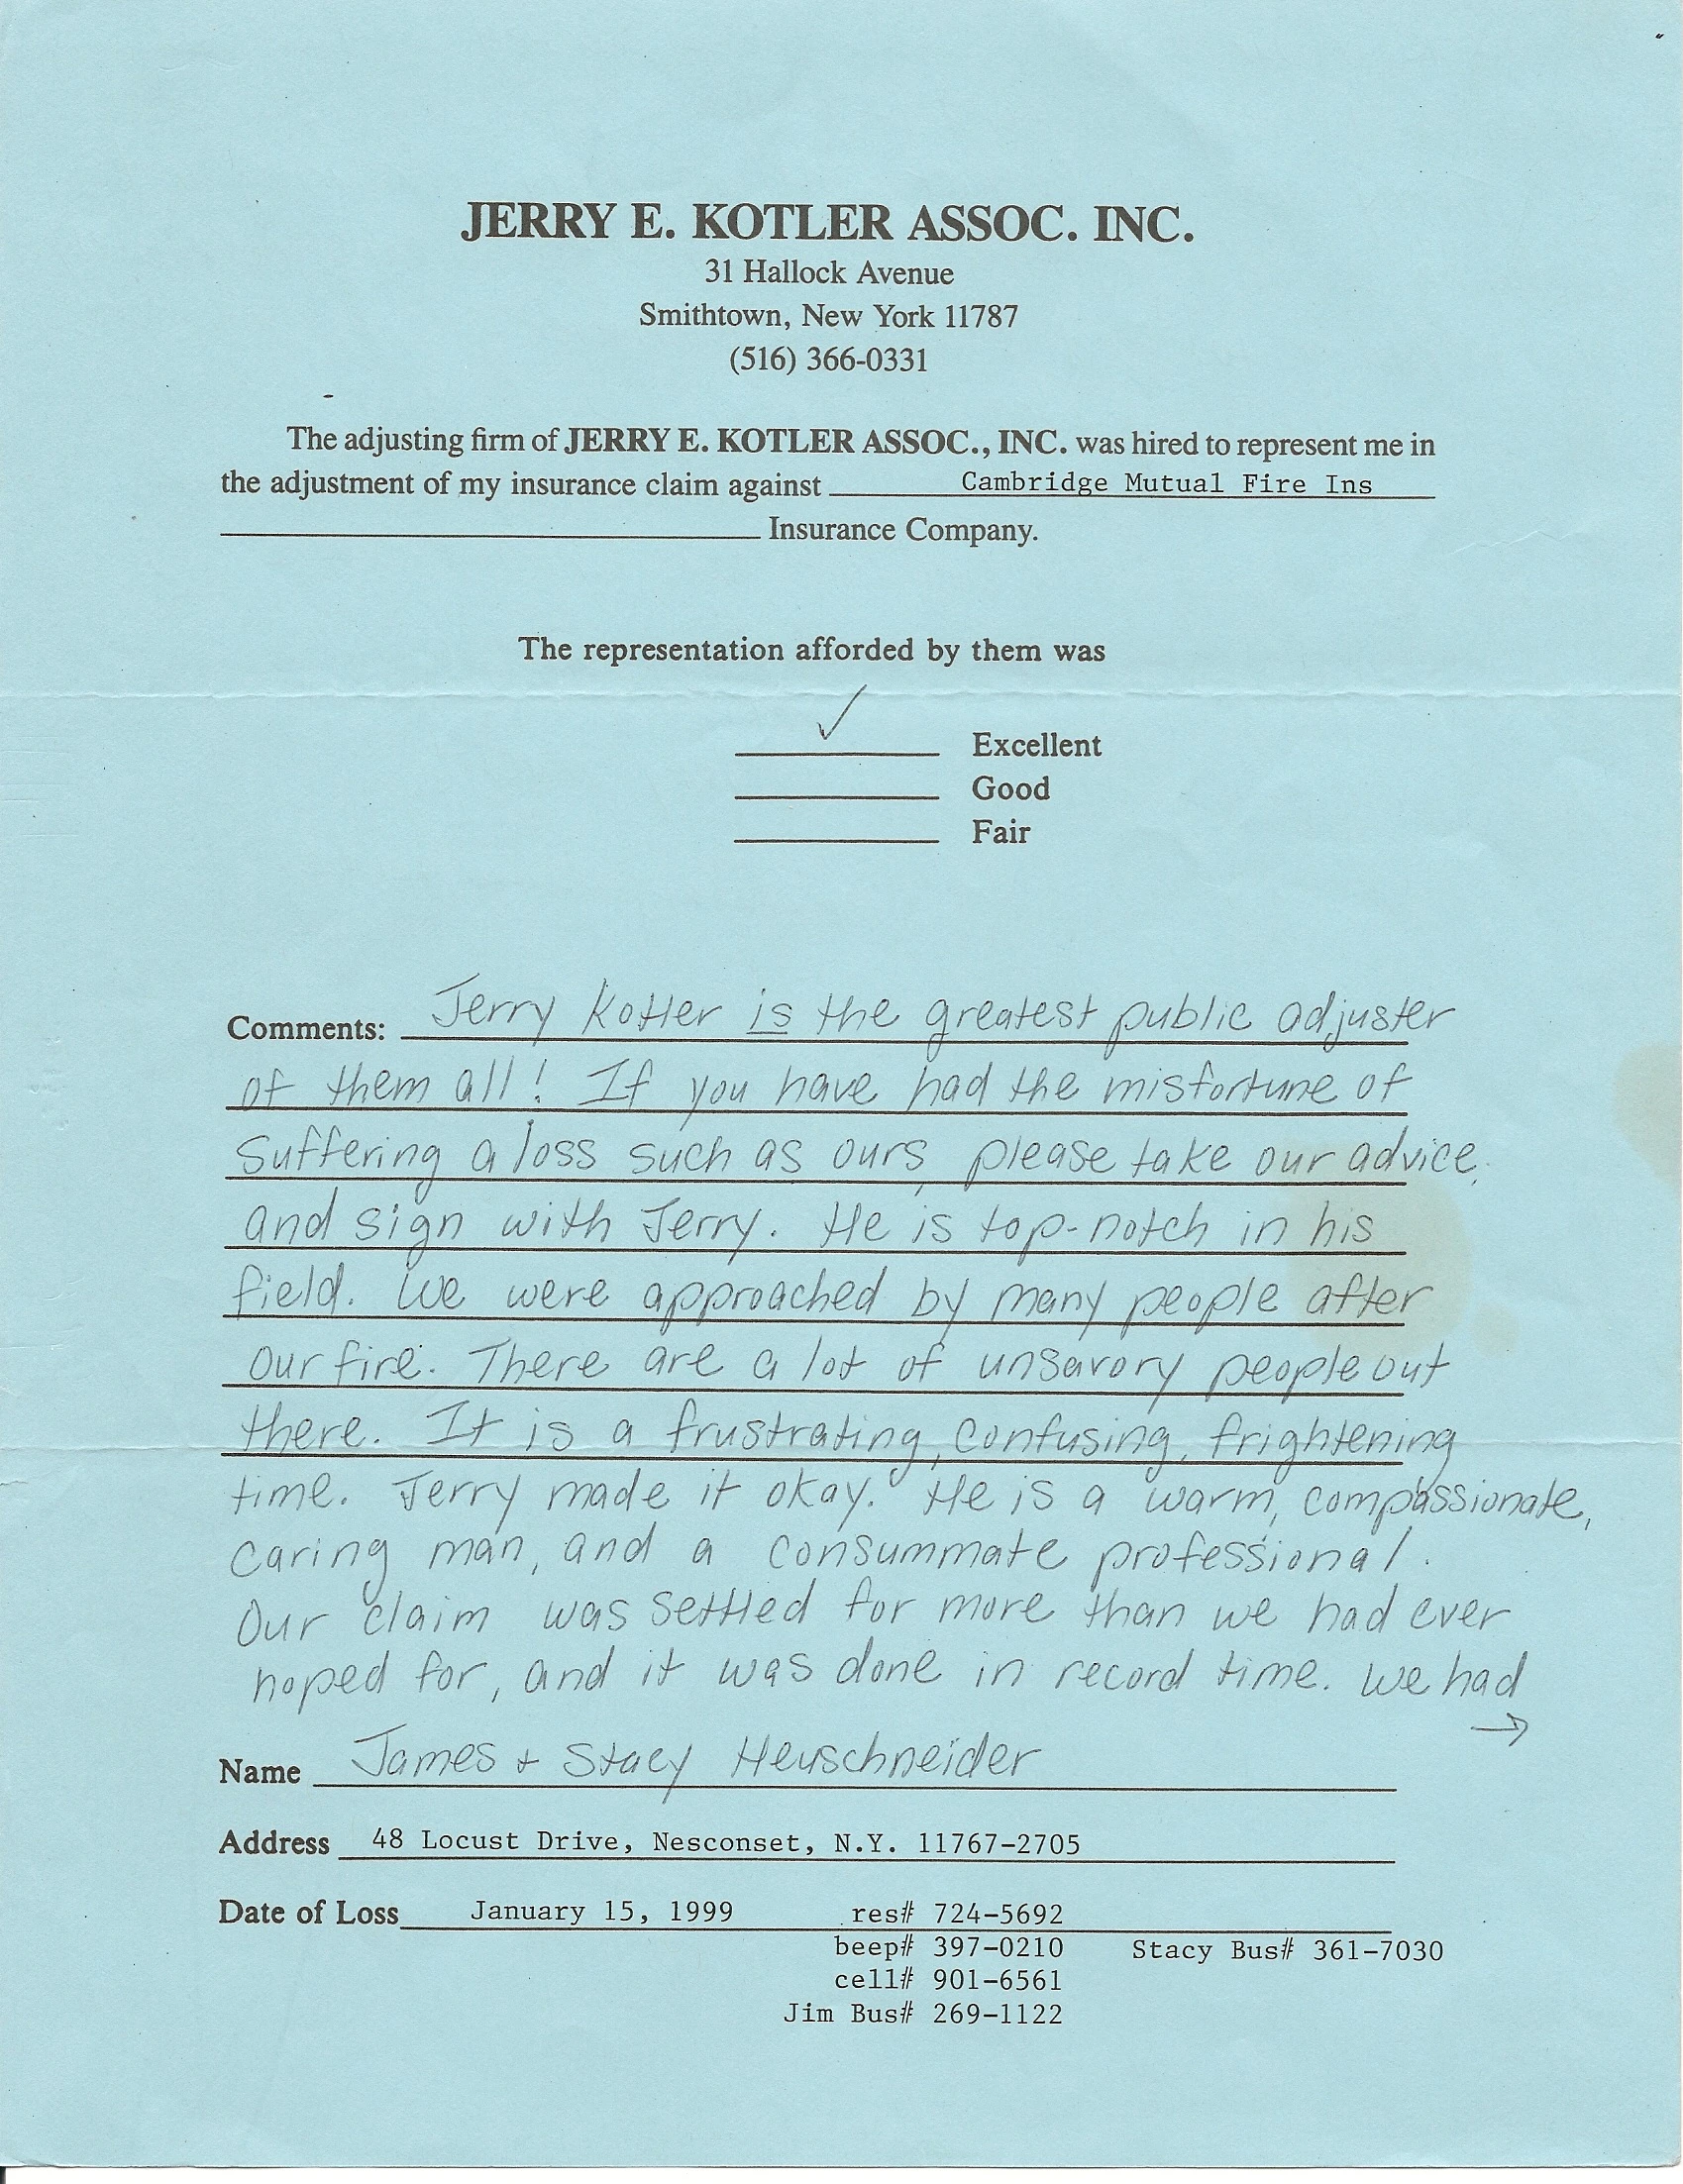 JERRY E. KOTLER ASSOC. INC.
31 Hallock Avenue
Smithtown, New York 11787
(516) 366-0331
The adjusting firm of JERRY E. KOTLER ASSOC., INC. was hired to represent me in
the adjustment of my insurance claim against Cambridge Mutual Fire Ins
Insurance Company.
The representation afforded by them was
✓ Excellent
Good
Fair
Comments: Jerry Kotler is the greatest public adjuster
of them all! If you have had the misfortune of
suffering a loss such as ours, please take our advice,
and sign with Jerry. He is top-notch in his
field. We were approached by many people after
our fire. There are a lot of unsavory people out
there. It is a frustrating, confusing, frightening
time. Jerry made it okay. He is a warm, compassionate,
caring man, and a consummate professional.
Our claim was settled for more than we had ever
hoped for, and it was done in record time. We had
→
Name James + Stacy Heuschneider
Address 48 Locust Drive, Nesconset, N.Y. 11767-2705
Date of Loss January 15, 1999 res# 724-5692
beep# 397-0210 Stacy Bus# 361-7030
cell# 901-6561
Jim Bus# 269-1122